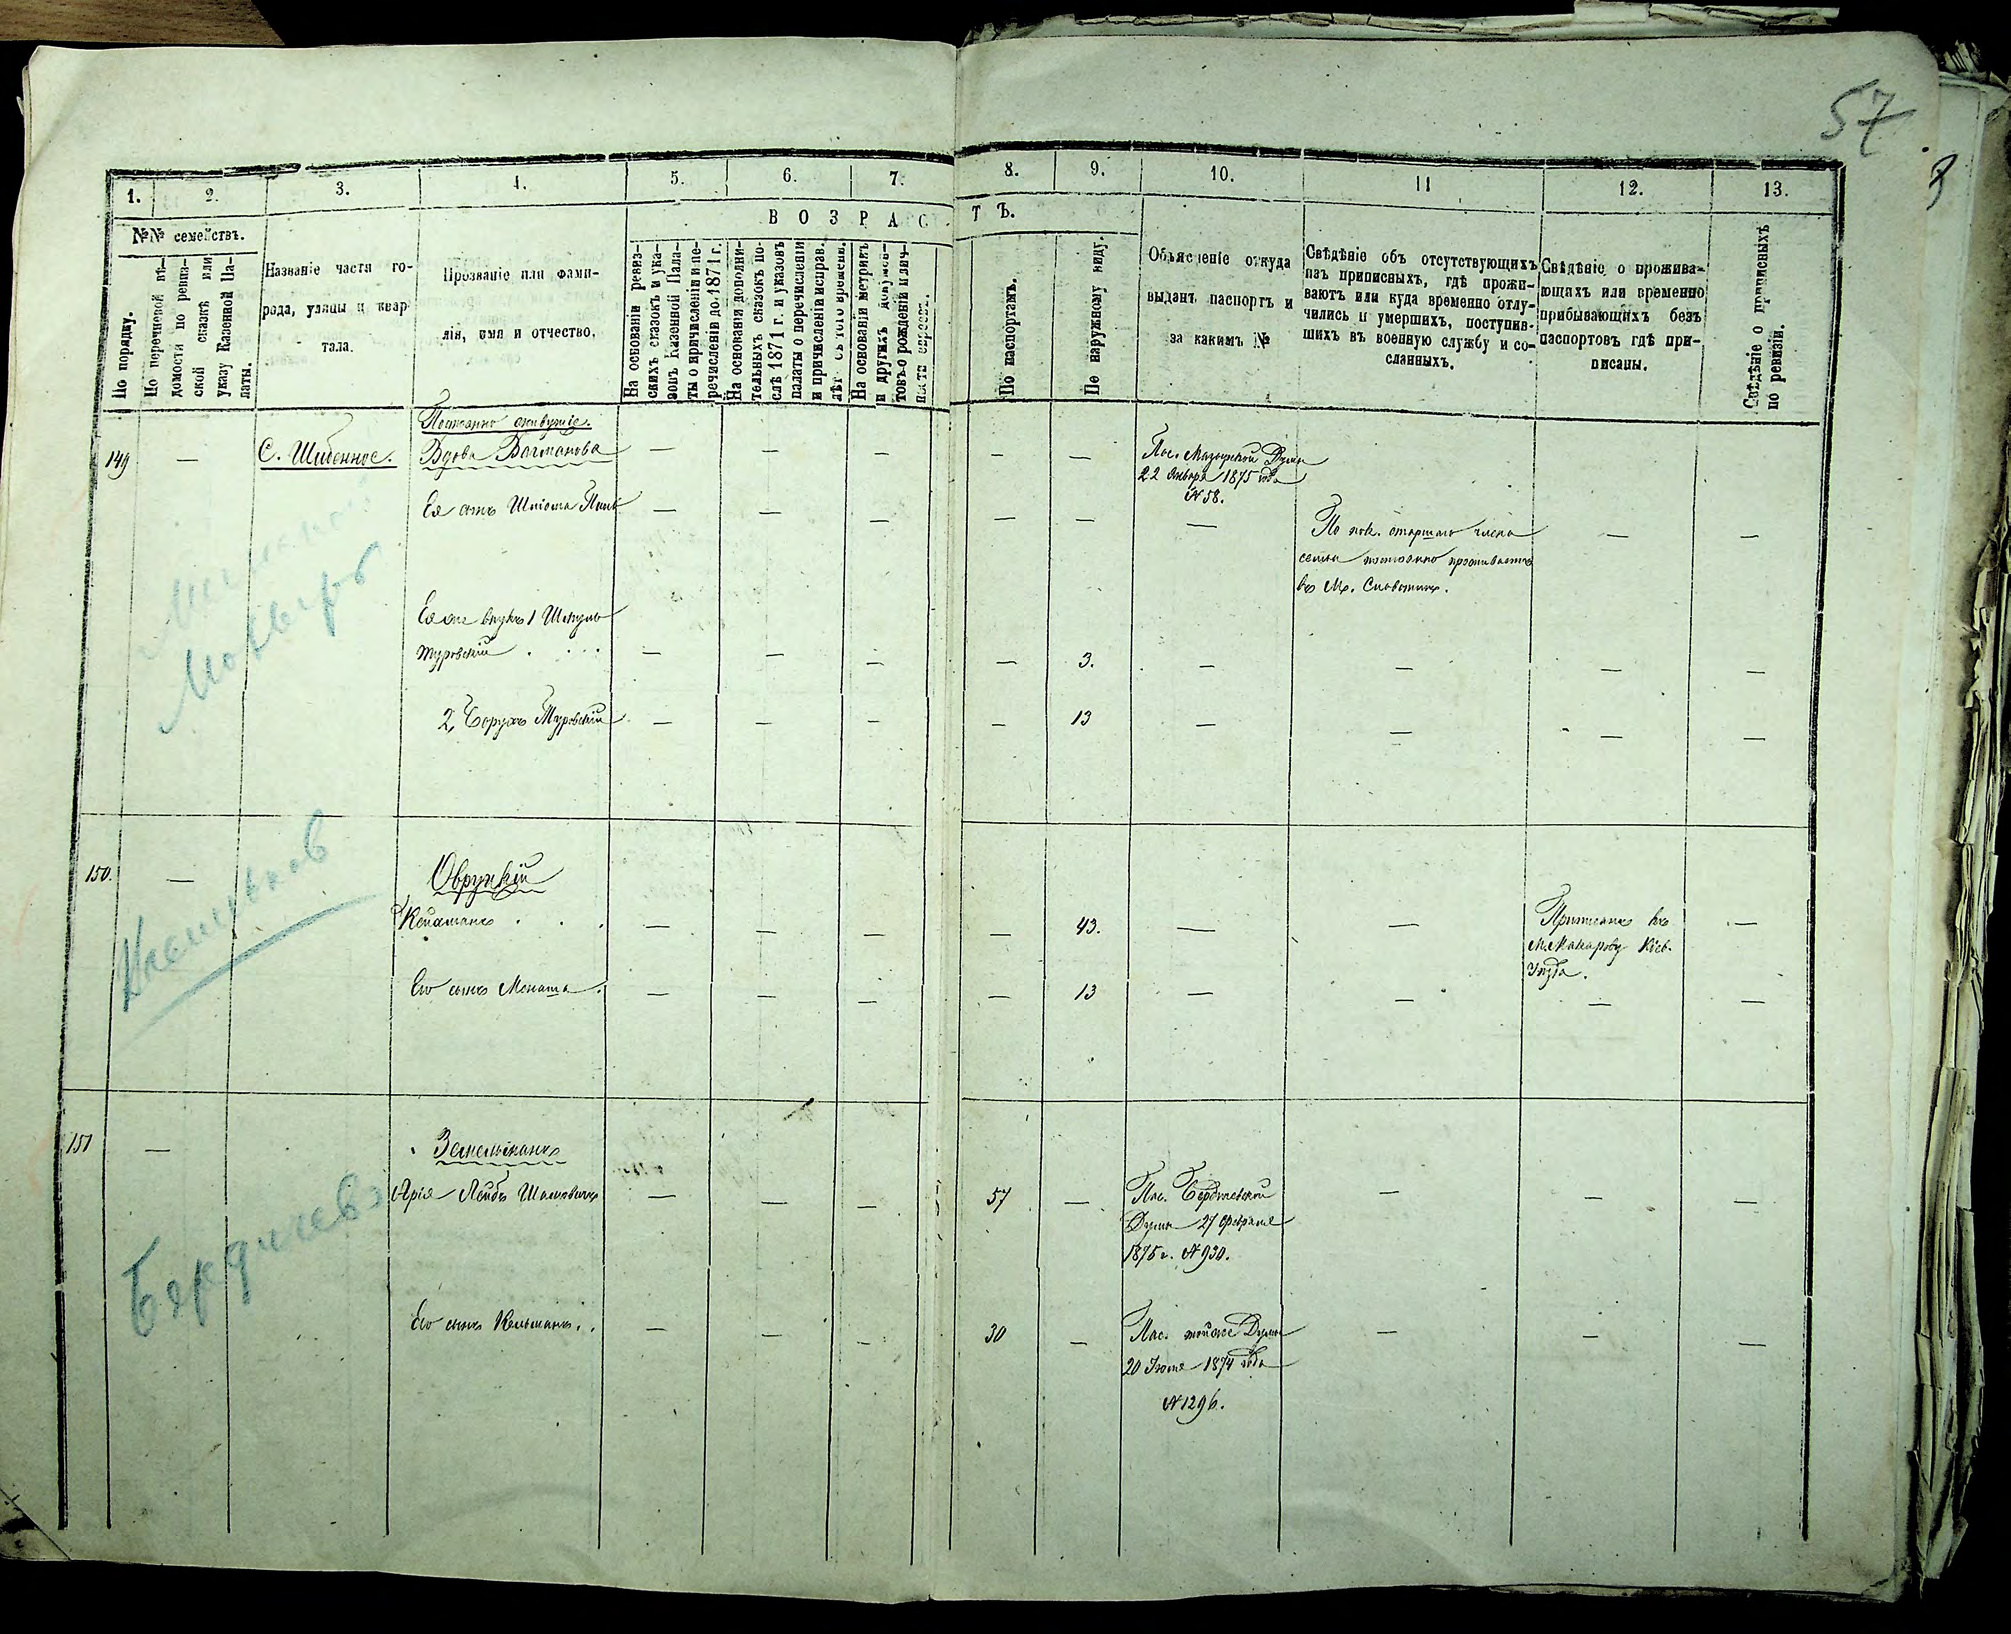 57
1.
2.
3.
4.
5.
6.
7.
8.
9.
10.
11
12.
13.
ВОЗРАСТЪ.
№№ семействъ.
По порядку.
По перечневой вѣ-
домости по ревиз-
ской сказкѣ или
указу Казенной Па-
латы.
Названіе части го-
рода, улицы и квар
тала.
Прозваніе или фами-
лія, имя и отчество.
На основаніи ревиз-
скихъ сказокъ и ука-
зовъ Казенной Пала-
ты о причисленіи и пе-
речисленіи до 1871 г.
На основаніи дополни-
тельныхъ сказокъ по-
слѣ 1871 г. и указовъ
палаты о перечисленіи
и причисленіи исправ.
лѣт съ того времени.
На основаніи метрикъ
и другихъ докумен-
товъ о рожденіи и лич-
По паспортамъ.
По наружному виду.
Объясненіе откуда
выданъ паспортъ и
за какимъ №
Свѣдѣніе объ отсутствующихъ
изъ приписныхъ, гдѣ прожи-
ваютъ или куда временно отлу-
чились и умершихъ, поступив-
шихъ въ военную службу и со-
сланныхъ.
Свѣдѣніе о прожива-
ющихъ или временно
прибывающихъ безъ
паспортовъ гдѣ при-
писаны.
Свѣдѣніе о приписныхъ
по ревизіи.
Постоянно живущіе.
149 — С. Шибенное. Вдова — — — — — Пас. Мозырской Думы
22 Января 1875 года
№ 58.
Ея — — — — — — По пок. старшаго члена — —
семьи постоянно проживаетъ
въ М.
Ея же внукъ 1 Шмуль
Туровскій — — — — 3. — — — —
2, Борухъ Туровскій — — — — 13 — — — —
Мозырь
150. — Овруцкій
— — — — 43. — — Приписанъ къ —
м. Макарову Кіев.
Уѣзда.
Его сынъ Менаша — — — — 13 — — — —
151 —
Арія Лейбъ — — — 57 — Пас. Бердичевской — — —
Думы 27 Февраля
1875 г. № 930.
Бердичевъ
Его сынъ Кельманъ — — — 30 — Пас. тойже Думы — — —
20 Іюня 1874 года
№ 1296.